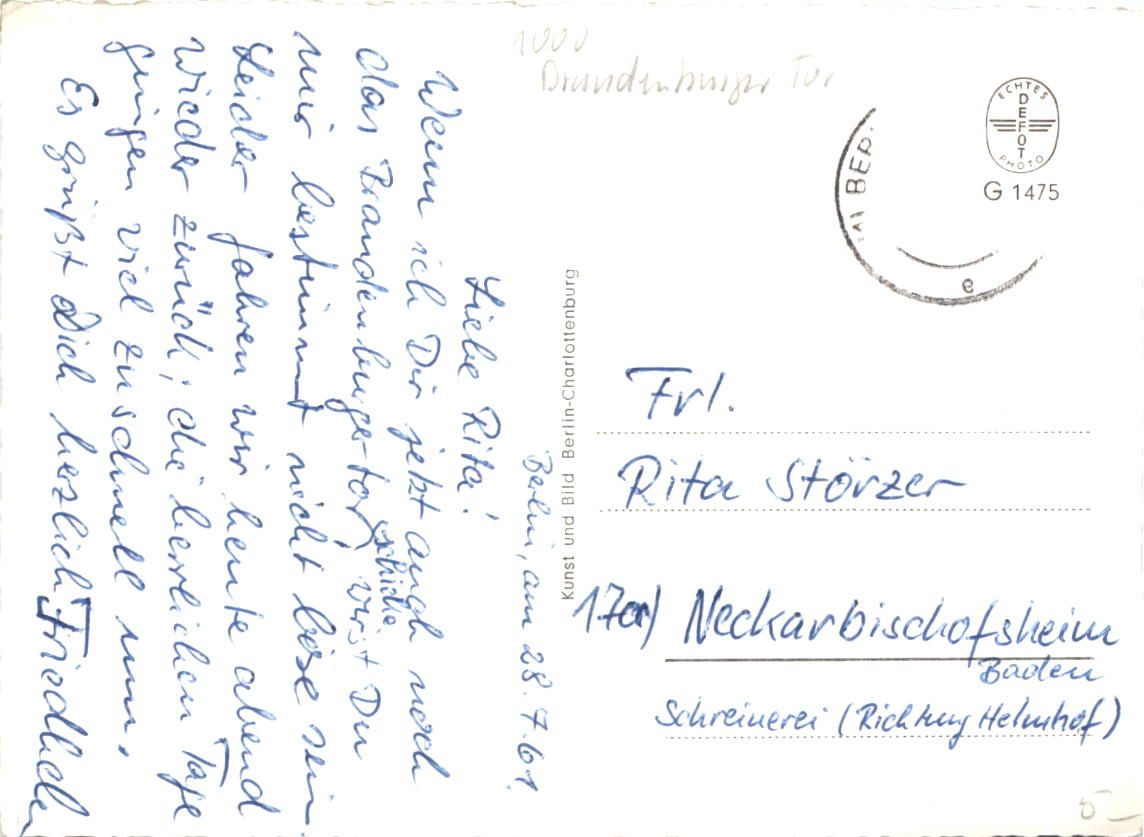 Berlin, am 28.7.61.
Liebe Rita!
Wenn ich Dir jetzt auch noch
das Brandenburger-tor schicke, wirst Du
mir bestimmt nicht böse sein.
Leider fahren wir heute abend
wieder zurück; die herrlichen Tage
gingen viel zu schnell um.
Es grüßt Dich herzlich
1000
Brandenburger Tor
ECHTES
DEFOT
PHOTO
G 1475
BER
e
Kunst und Bild Berlin-Charlottenburg
Frl.
Rita Störzer
17a) Neckarbischofsheim
Baden
Schreinerei (Richtung Helmhof)